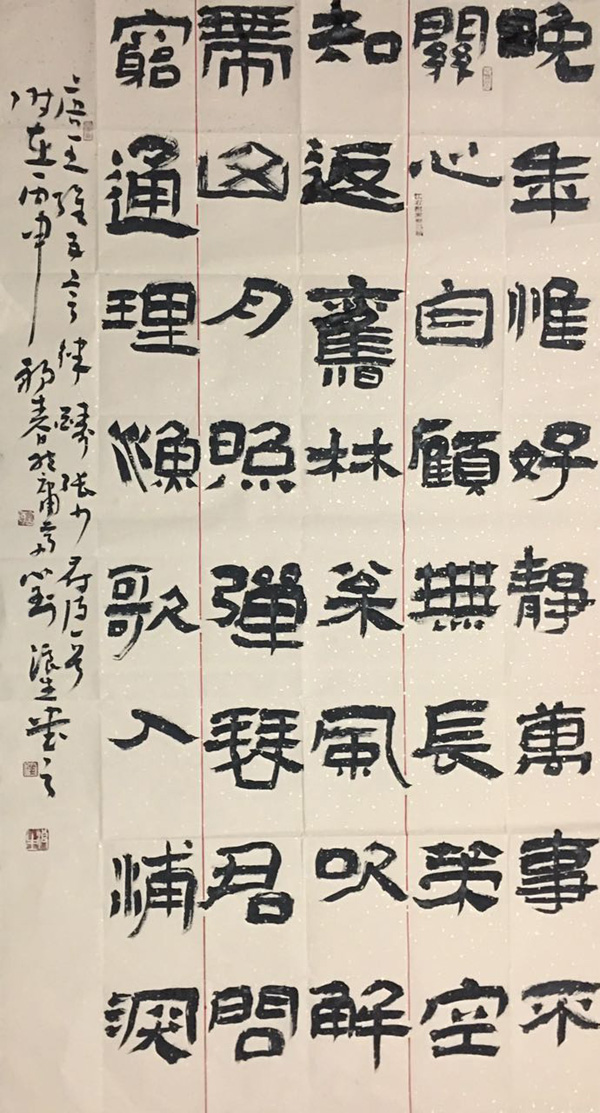 晚年惟好靜萬事不
關心自顧無長策空
知返舊林松風吹解
帶山月照彈琴君問
窮通理漁歌入浦深
唐王維五言律酬張少府詩一首
時在丙申初春於庸齋書之